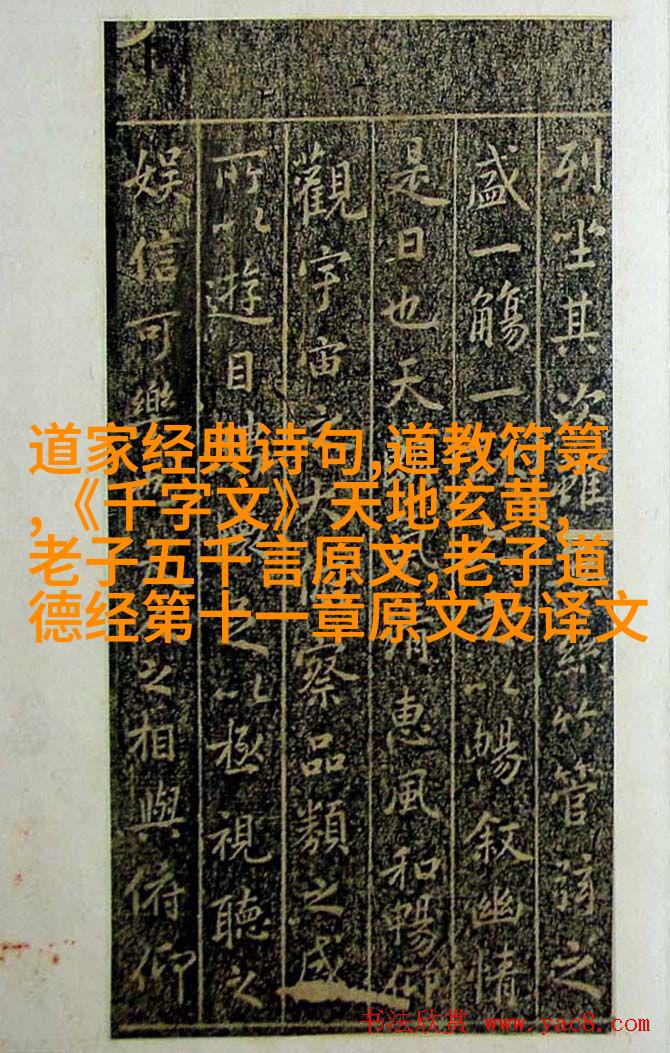 列坐其次雖絲竹管弦之
盛一觴一以暢叙幽情
是日也天清惠風和暢仰
觀宇宙之大俯察品類之盛
所以遊目足以極視聽之
娱信可樂之相與俯仰
道家经典诗句,道教符箓
,《千字文》天地玄黄,
老子五千言原文,老子道
德经第十一章原文及译文
书法欣赏 www.yac8.com